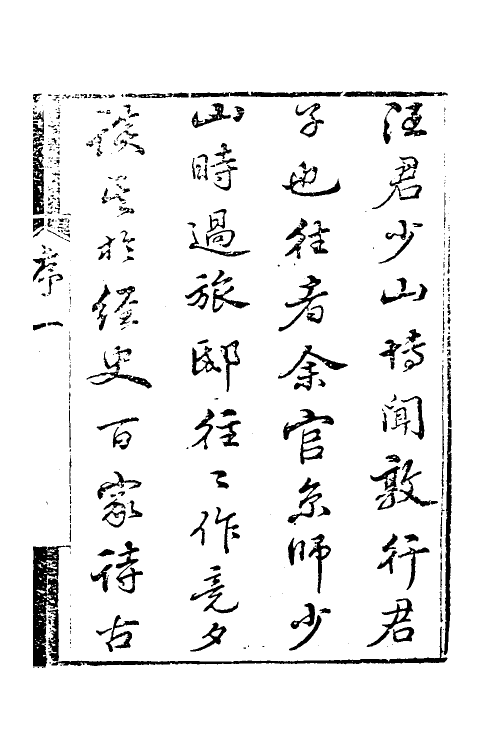 汪君少山博聞敦行君
子也往者余官京師少
山時過旅邸往〻作竟夕
談其於經史百家詩古
一